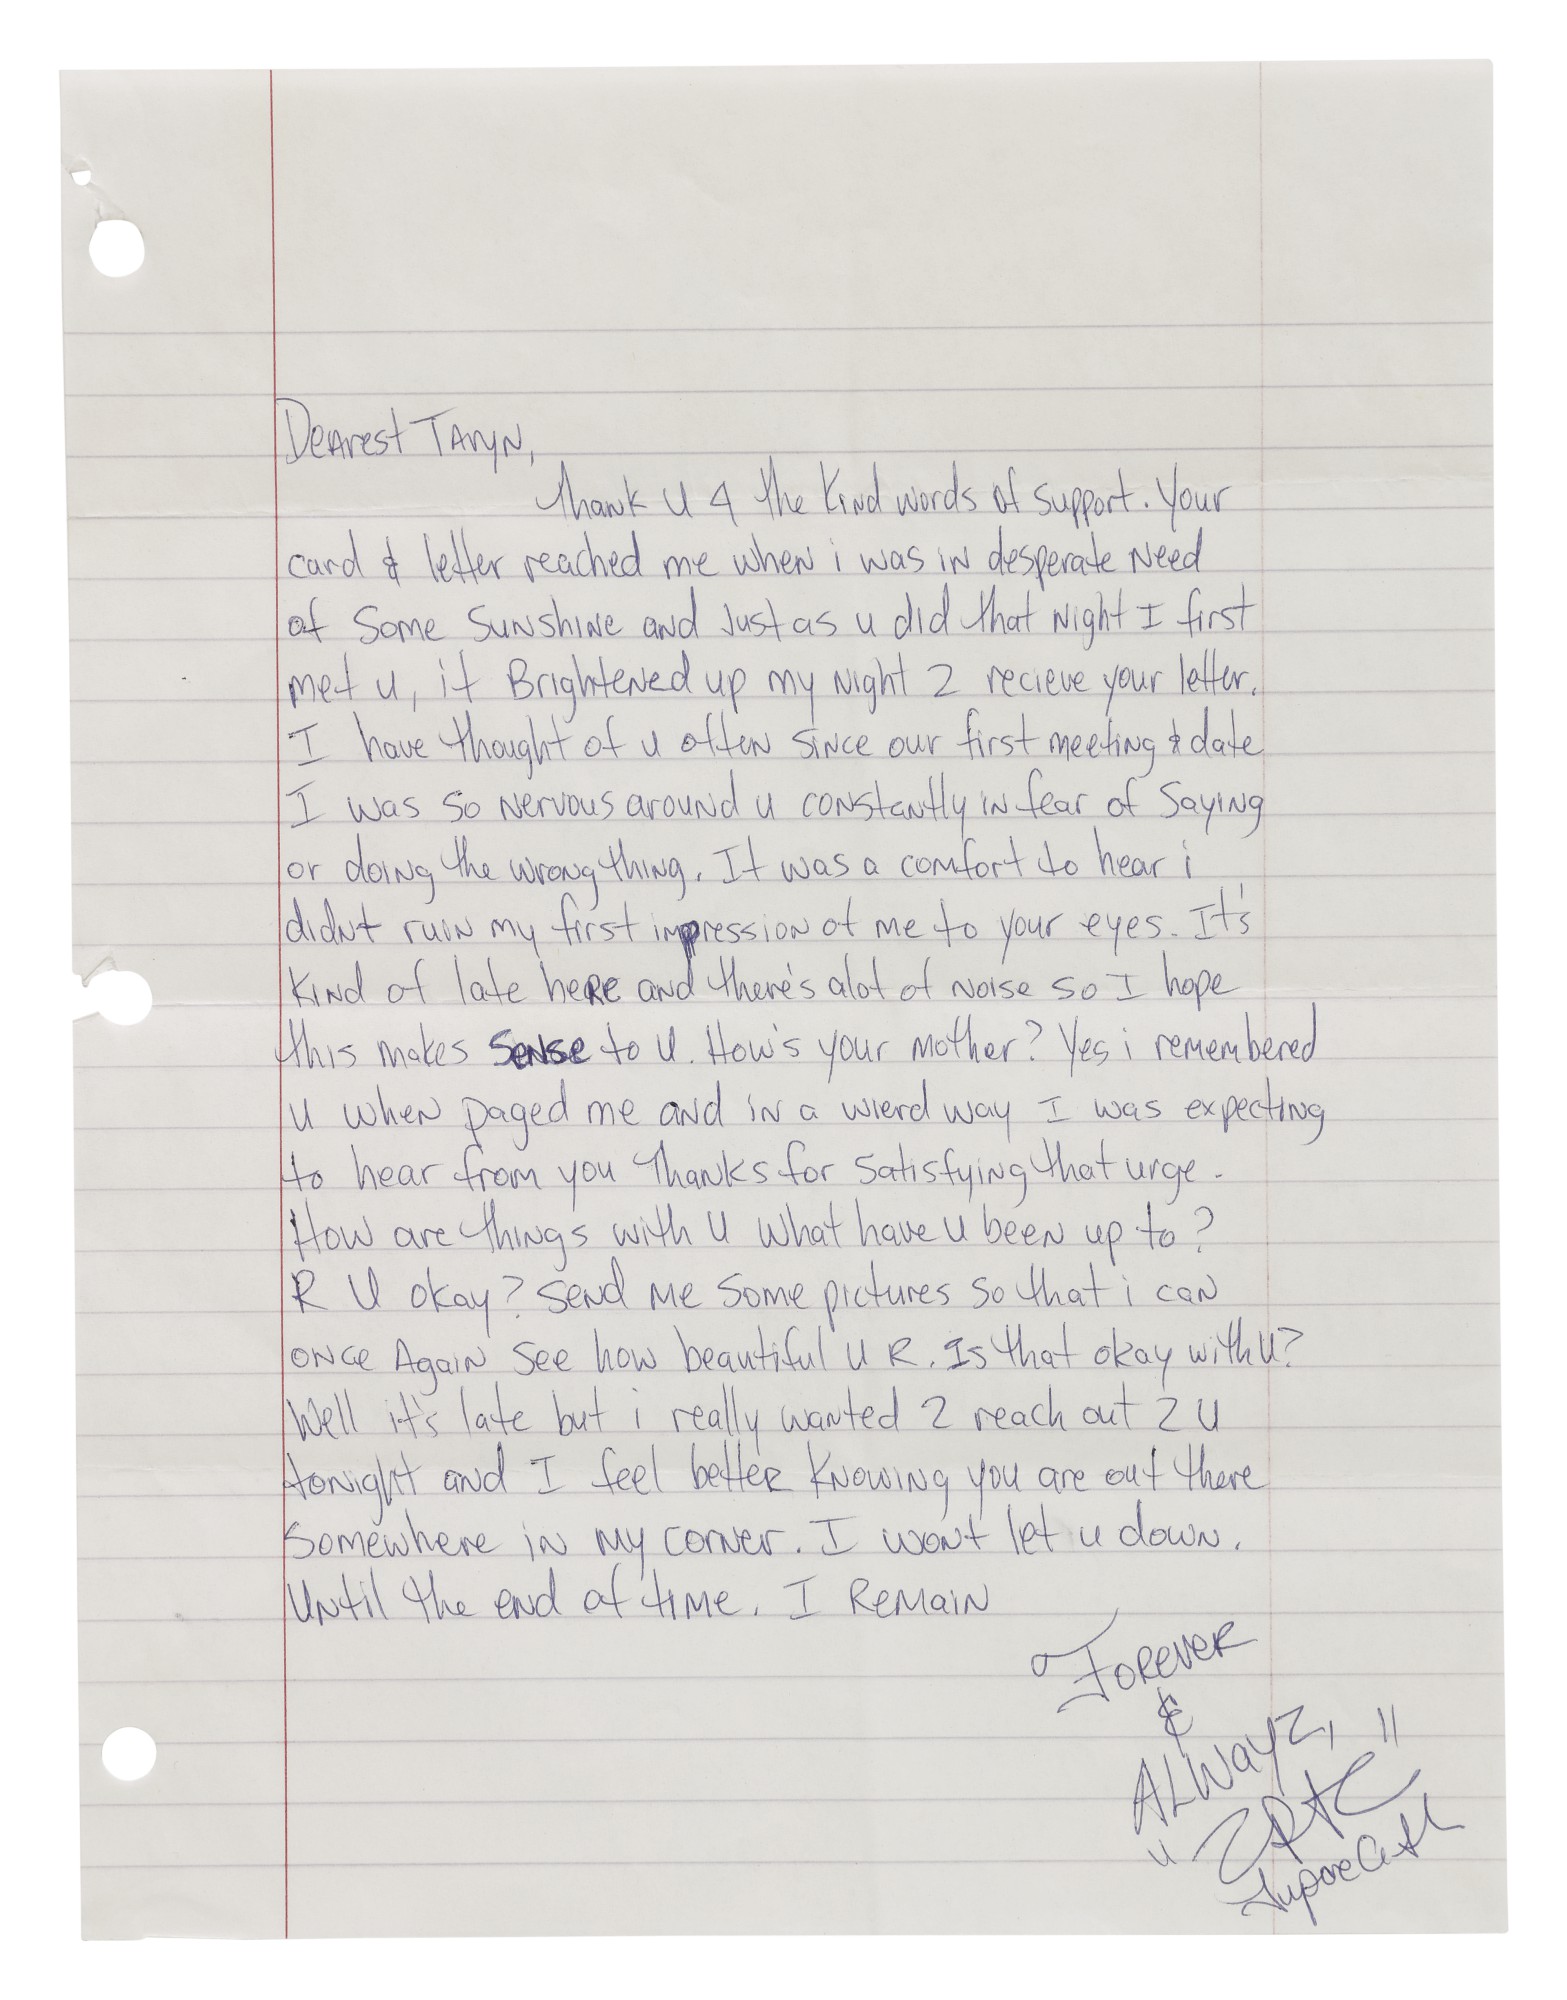 Dearest Taryn,
Thank U 4 the Kind words of support. Your
card & letter reached me when i was in desperate Need
of Some Sunshine and Just as u did that Night I first
met u, it Brightened up my Night 2 recieve your letter.
I have thought of u often since our first meeting & date
I was so nervous around u constantly in fear of Saying
or doing the wrong thing. It was a comfort to hear i
didn't ruin my first impression of me to your eyes. It's
Kind of late here and there's alot of Noise so I hope
this makes Sense to U. How's your mother? Yes i remembered
u when paged me and in a wierd way I was expecting
to hear from you Thanks for Satisfying that urge.
How are things with U what have u been up to?
R U okay? Send me Some pictures so that i can
once Again See how beautiful U R. Is that okay with U?
Well it's late but i really wanted 2 reach out 2 U
tonight and I feel better Knowing you are out there
Somewhere in my corner. I won't let u down.
Until the end of time. I Remain
Forever
&
ALWayz,
"2PAC"
Tupac